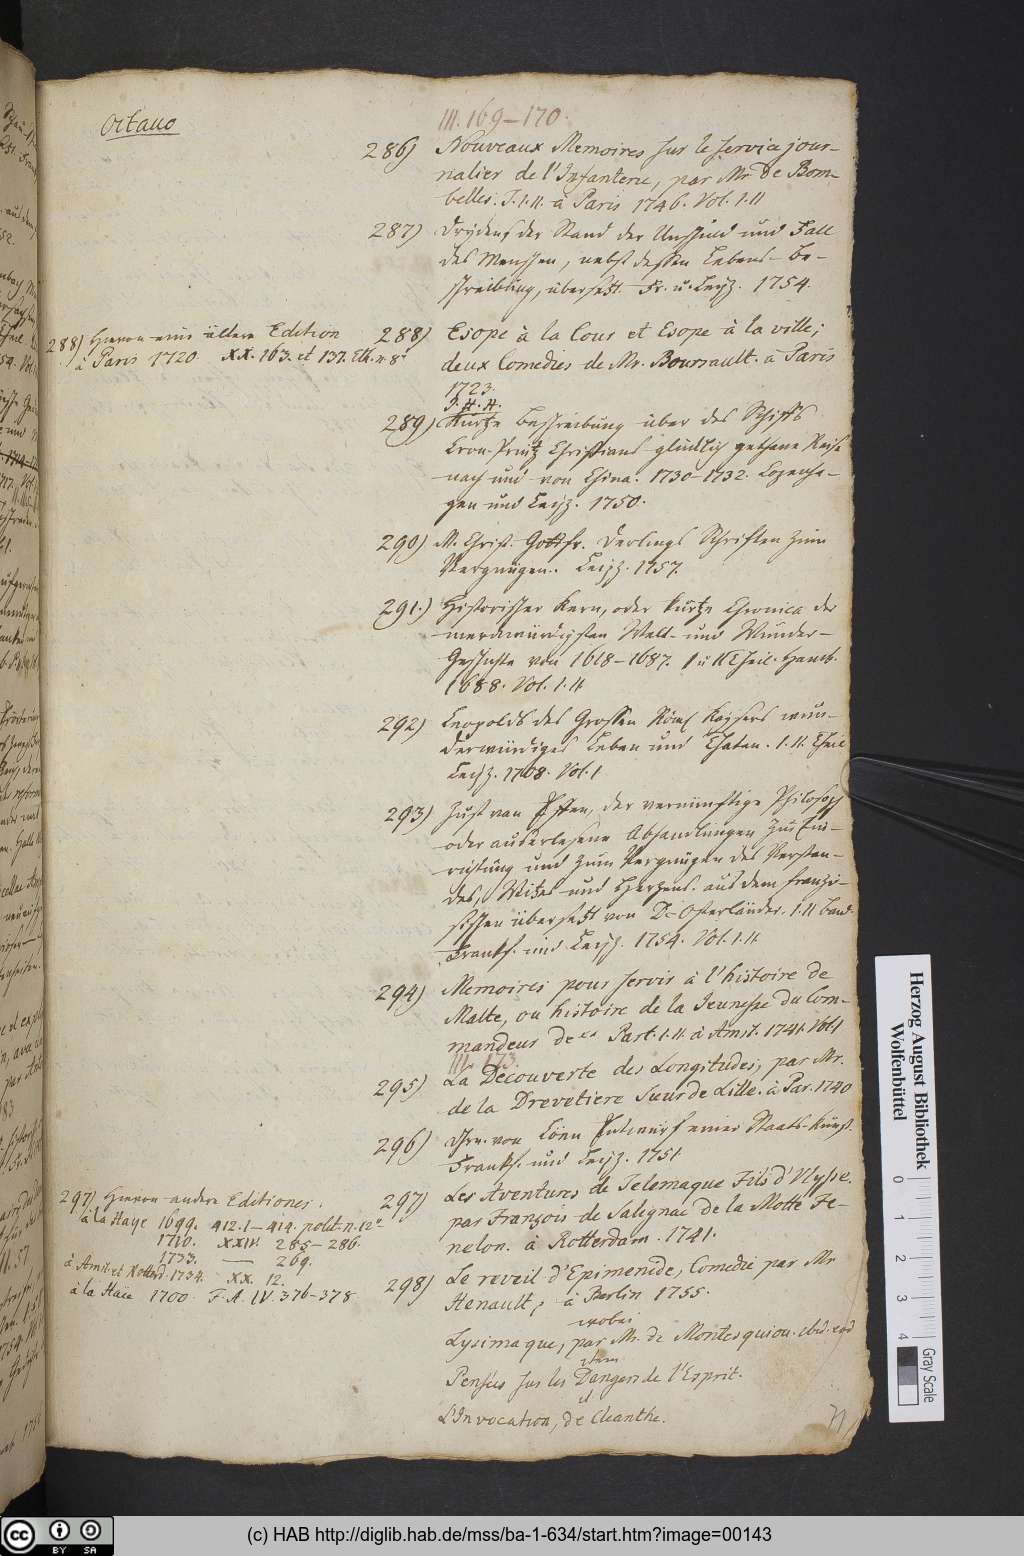 Octavo
III. 169-170.
286) Nouveaux Memoires sur le service jour-
nalier de l'Infanterie, par Mr. de Bom-
belles. T. I. II. à Paris 1746. Vol. I. II
287) Drydens der Stand der Unschuld und Fall
des Menschen, nebst dessen Lebens-Be-
schreibung, übersetzt. Fr. u. Leipz. 1754.
288) Hievon eine ältere Edition
à Paris 1720. XX. 163. et 137. Eth. n. 8°
288) Esope à la Cour et Esope à la ville;
deux Comedies de Mr. Boursault. à Paris
1723.
J. H. H.
289) Kurtze Beschreibung über des Schiffs
Cron-Printz Christians glücklich gethane Reise
nach und von China. 1730-1732. Copenha-
gen und Leipz. 1750.
290) M. Christ. Gottfr. Derlings Schriften zum
Vergnügen. Leipz. 1757.
291.) Historischer Kern, oder kurtze Chronica der
merckwürdigsten Welt- und Wunder-
Geschichte von 1618-1687. I u II Theil. Hamb.
1688. Vol. I. II
292) Leopolds des Grossen Röms Kaysers wun-
derwürdiges Leben und Thaten. I. II. Theil
Leipz. 1708. Vol. I
293) Just van Effen, der vernünftige Philosoph
oder auserlesene Abhandlungen zur Ein-
richtung und zum Vergnügen des Verstan-
des, Witzes und Hertzens. aus dem franzö-
sischen übersetzt von D. Osterländer. I. II Band.
Franckf. und Leipz. 1754. Vol. I. II.
294) Memoires pour servir à l'histoire de
Malte, ou histoire de la Jeunesse du Com-
mandeur de ** Part. I. II. à Amst. 1741. Vol I
III. 173.
295) La Decouverte des Longitudes, par Mr.
de la Drevetiere Sieur de Lille. à Par. 1740
296) Hrn. von Loen Entwurf einer Staats-Kunst.
Franckf. und Leipz. 1751
297) Hievon andere Editiones.
à la Haye 1699. 412. 1-414. polit. n. 12°
1710. XXIII. 285-286.
1733. — 269.
à Amst. et Rotterd. 1734. XX. 12.
à la Haie 1700. F. A. IV. 376-378
297) Les Aventures de Telemaque Fils d'Ulysse.
par François de Salignac de la Motte Fe-
nelon. à Rotterdam. 1741.
298) Le reveil d'Epimenide, Comedie par Mr
Henault, à Berlin 1755.
wobei
Lysimaque, par Mr. de Montesquiou. ibid. eod
item
Pensées sur les Dangers de l'Esprit.
it
L'Invocation, de Cleanthe.
Herzog August Bibliothek
Wolfenbüttel
0 1 2 3 4
Gray Scale
CC BY SA
(c) HAB http://diglib.hab.de/mss/ba-1-634/start.htm?image=00143